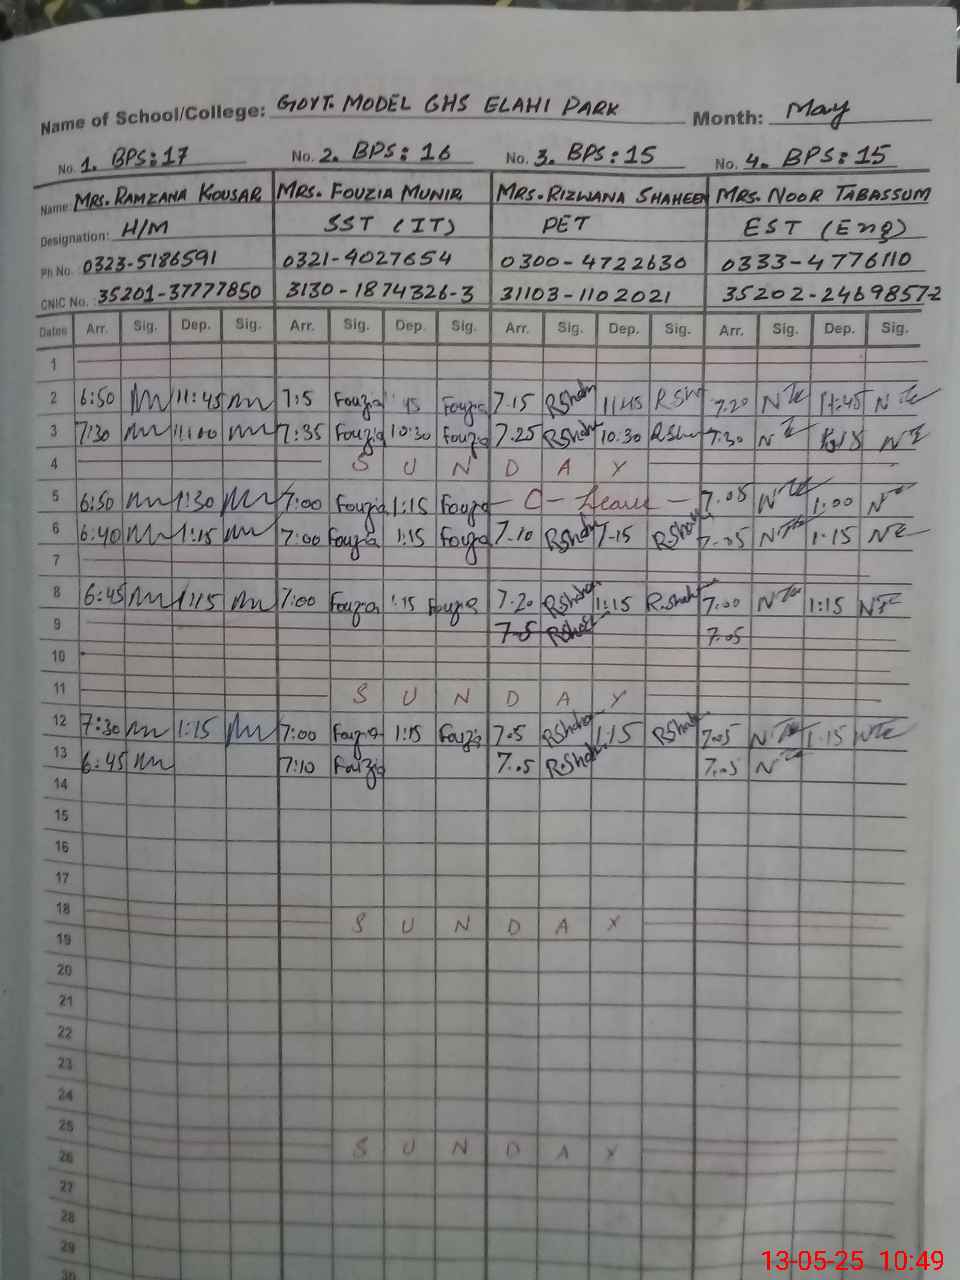 Name of School/College: GOVT. MODEL GHS ELAHI PARK Month: May
No. 1. BPS: 17 No. 2. BPS: 16 No. 3. BPS: 15 No. 4. BPS: 15
Name: MRS. RAMZANA KOUSAR MRS. FOUZIA MUNIR MRS. RIZWANA SHAHEEN MRS. NOOR TABASSUM
Designation: H/M SST (IT) PET EST (Eng)
Ph No. : 0323-5186591 0321-4027654 0300-4722630 0333-4776110
CNIC No. : 35201-37777850 3130-1874326-3 31103-1102021 35202-2469857-2
Dates Arr. Sig. Dep. Sig. Arr. Sig. Dep. Sig. Arr. Sig. Dep. Sig. Arr. Sig. Dep. Sig.
1
2 6:50 11:45 7:5 Fouzia 45 Fouzia 7.15 RShah 11:45 RSh 7.20 11:45
3 7:30 11:00 7:35 Fouzia 10:30 Fouzia 7.25 RShah 10:30 RSha 7.30
4 S U N D A Y
5 6:50 1:30 7:00 Fouzia 1:15 Fouzia - C - Leave - 7.05 1:00
6 6:40 1:15 7:00 Fouzia 1:15 Fouzia 7.10 RShah 7.15 RShah 7.05 1.15
7
8 6:45 1:15 7:00 Fouzia 1:15 Fouzia 7.20 RShah 1:15 R.Shah 7.00 1:15
9 7.5 RShah 7.05
10
11 S U N D A Y
12 7:30 1:15 7:00 Fouzia 1:15 Fouzia 7.05 RShah 1:15 RShah 7.05 1.15
13 6:45 7:10 Fouzia 7.05 R.Shah 7.05
14
15
16
17
18 S U N D A Y
19
20
21
22
23
24
25 S U N D A Y
26
27
28
29
30
13-05-25 10:49